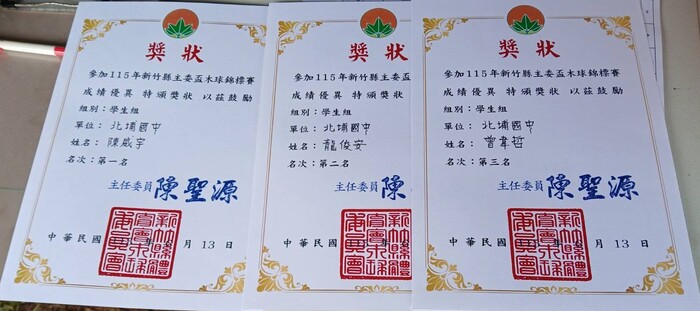 獎狀
參加115年新竹縣主委盃木球錦標賽
成績優異 特頒獎狀 以茲鼓勵
組別：學生組
單位：北埔國中
姓名：陳威宇
名次：第一名
主任委員 陳聖源
中華民國 月13日
獎狀
參加115年新竹縣主委盃木球錦標
成績優異 特頒獎狀 以茲鼓
組別：學生組
單位：北埔國中
姓名：龍俊安
名次：第二名
主任委員 陳聖
中華民國 月13
獎狀
參加115年新竹縣主委盃木球錦標賽
成績優異 特頒獎狀 以茲鼓勵
組別：學生組
單位：北埔國中
姓名：曾韋哲
名次：第三名
主任委員 陳聖源
中華民國 月13日